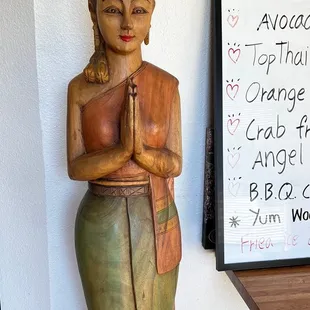 Avoca
Top Thai
Orange
Crab fr
Angel
B.B.Q C
Yum Wo
Fried Ice